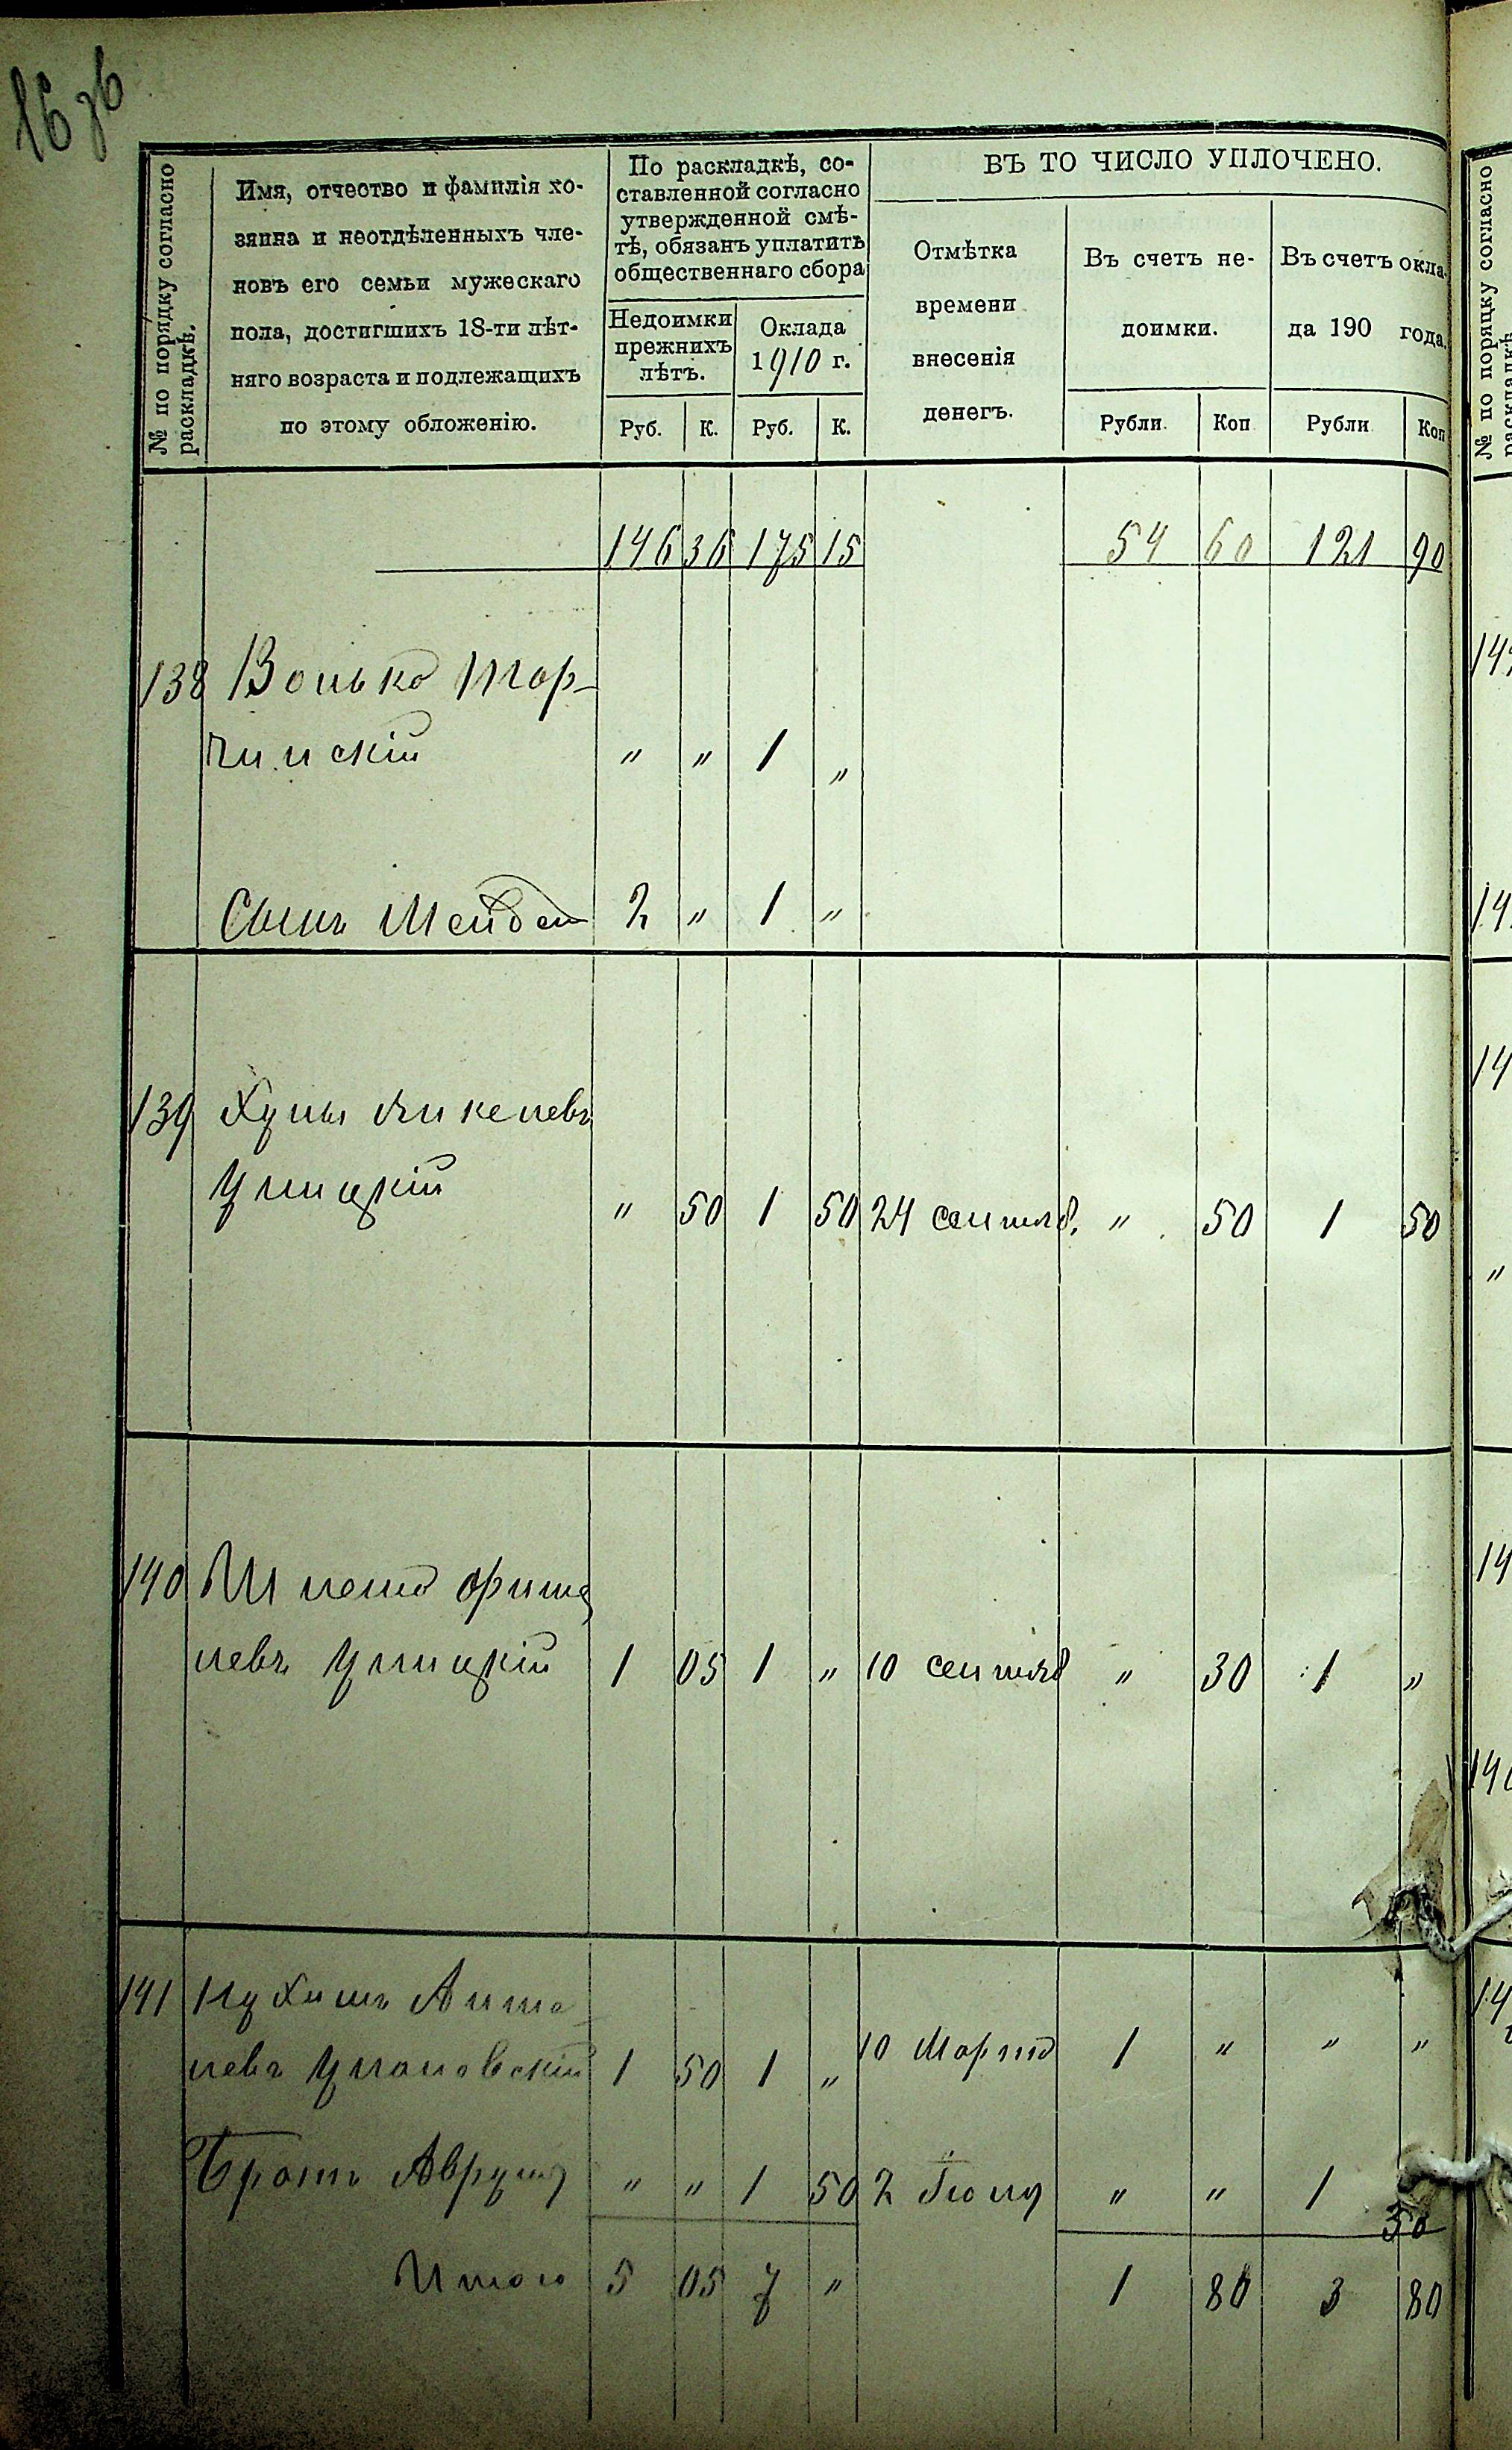 16 зб
№ по порядку согласно раскладкѣ.
Имя, отчество и фамилія хо-
зяина и неотдѣленныхъ чле-
новъ его семьи мужескаго
пола, достигшихъ 18-ти лѣт-
няго возраста и подлежащихъ
по этому обложенію.
По раскладкѣ, со-
ставленной согласно
утвержденной смѣ-
тѣ, обязанъ уплатить
общественнаго сбора
Недоимки
прежнихъ
лѣтъ.
Оклада
1910 г.
Руб. К. Руб. К.
ВЪ ТО ЧИСЛО УПЛОЧЕНО.
Отмѣтка
времени
внесенія
денегъ.
Въ счетъ не-
доимки.
Въ счетъ окла-
да 190 года.
Рубли Коп Рубли Коп
146 36 175 15 54 60 121 90
138 Волько Тор-
чинскій " " 1 "
Сынъ 2 " 1 "
139
Улицкій " 50 1 50 24 сентяб. " 50 1 50
140
левъ Улицкій 1 05 1 " 10 сентяб " 30 1 "
141
левъ Улановскій 1 50 1 " 10 Марта 1 " " "
Братъ Аврумъ " " 1 50 2 Іюля " " 1 30
Итого 5 05 7 " 1 80 3 80
№ по порядку согласно
раскладкѣ